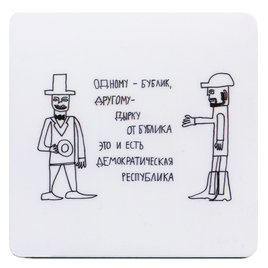 ОДНОМУ – БУБЛИК,
ДРУГОМУ –
ДЫРКУ
ОТ БУБЛИКА
ЭТО И ЕСТЬ
ДЕМОКРАТИЧЕСКАЯ
РЕСПУБЛИКА